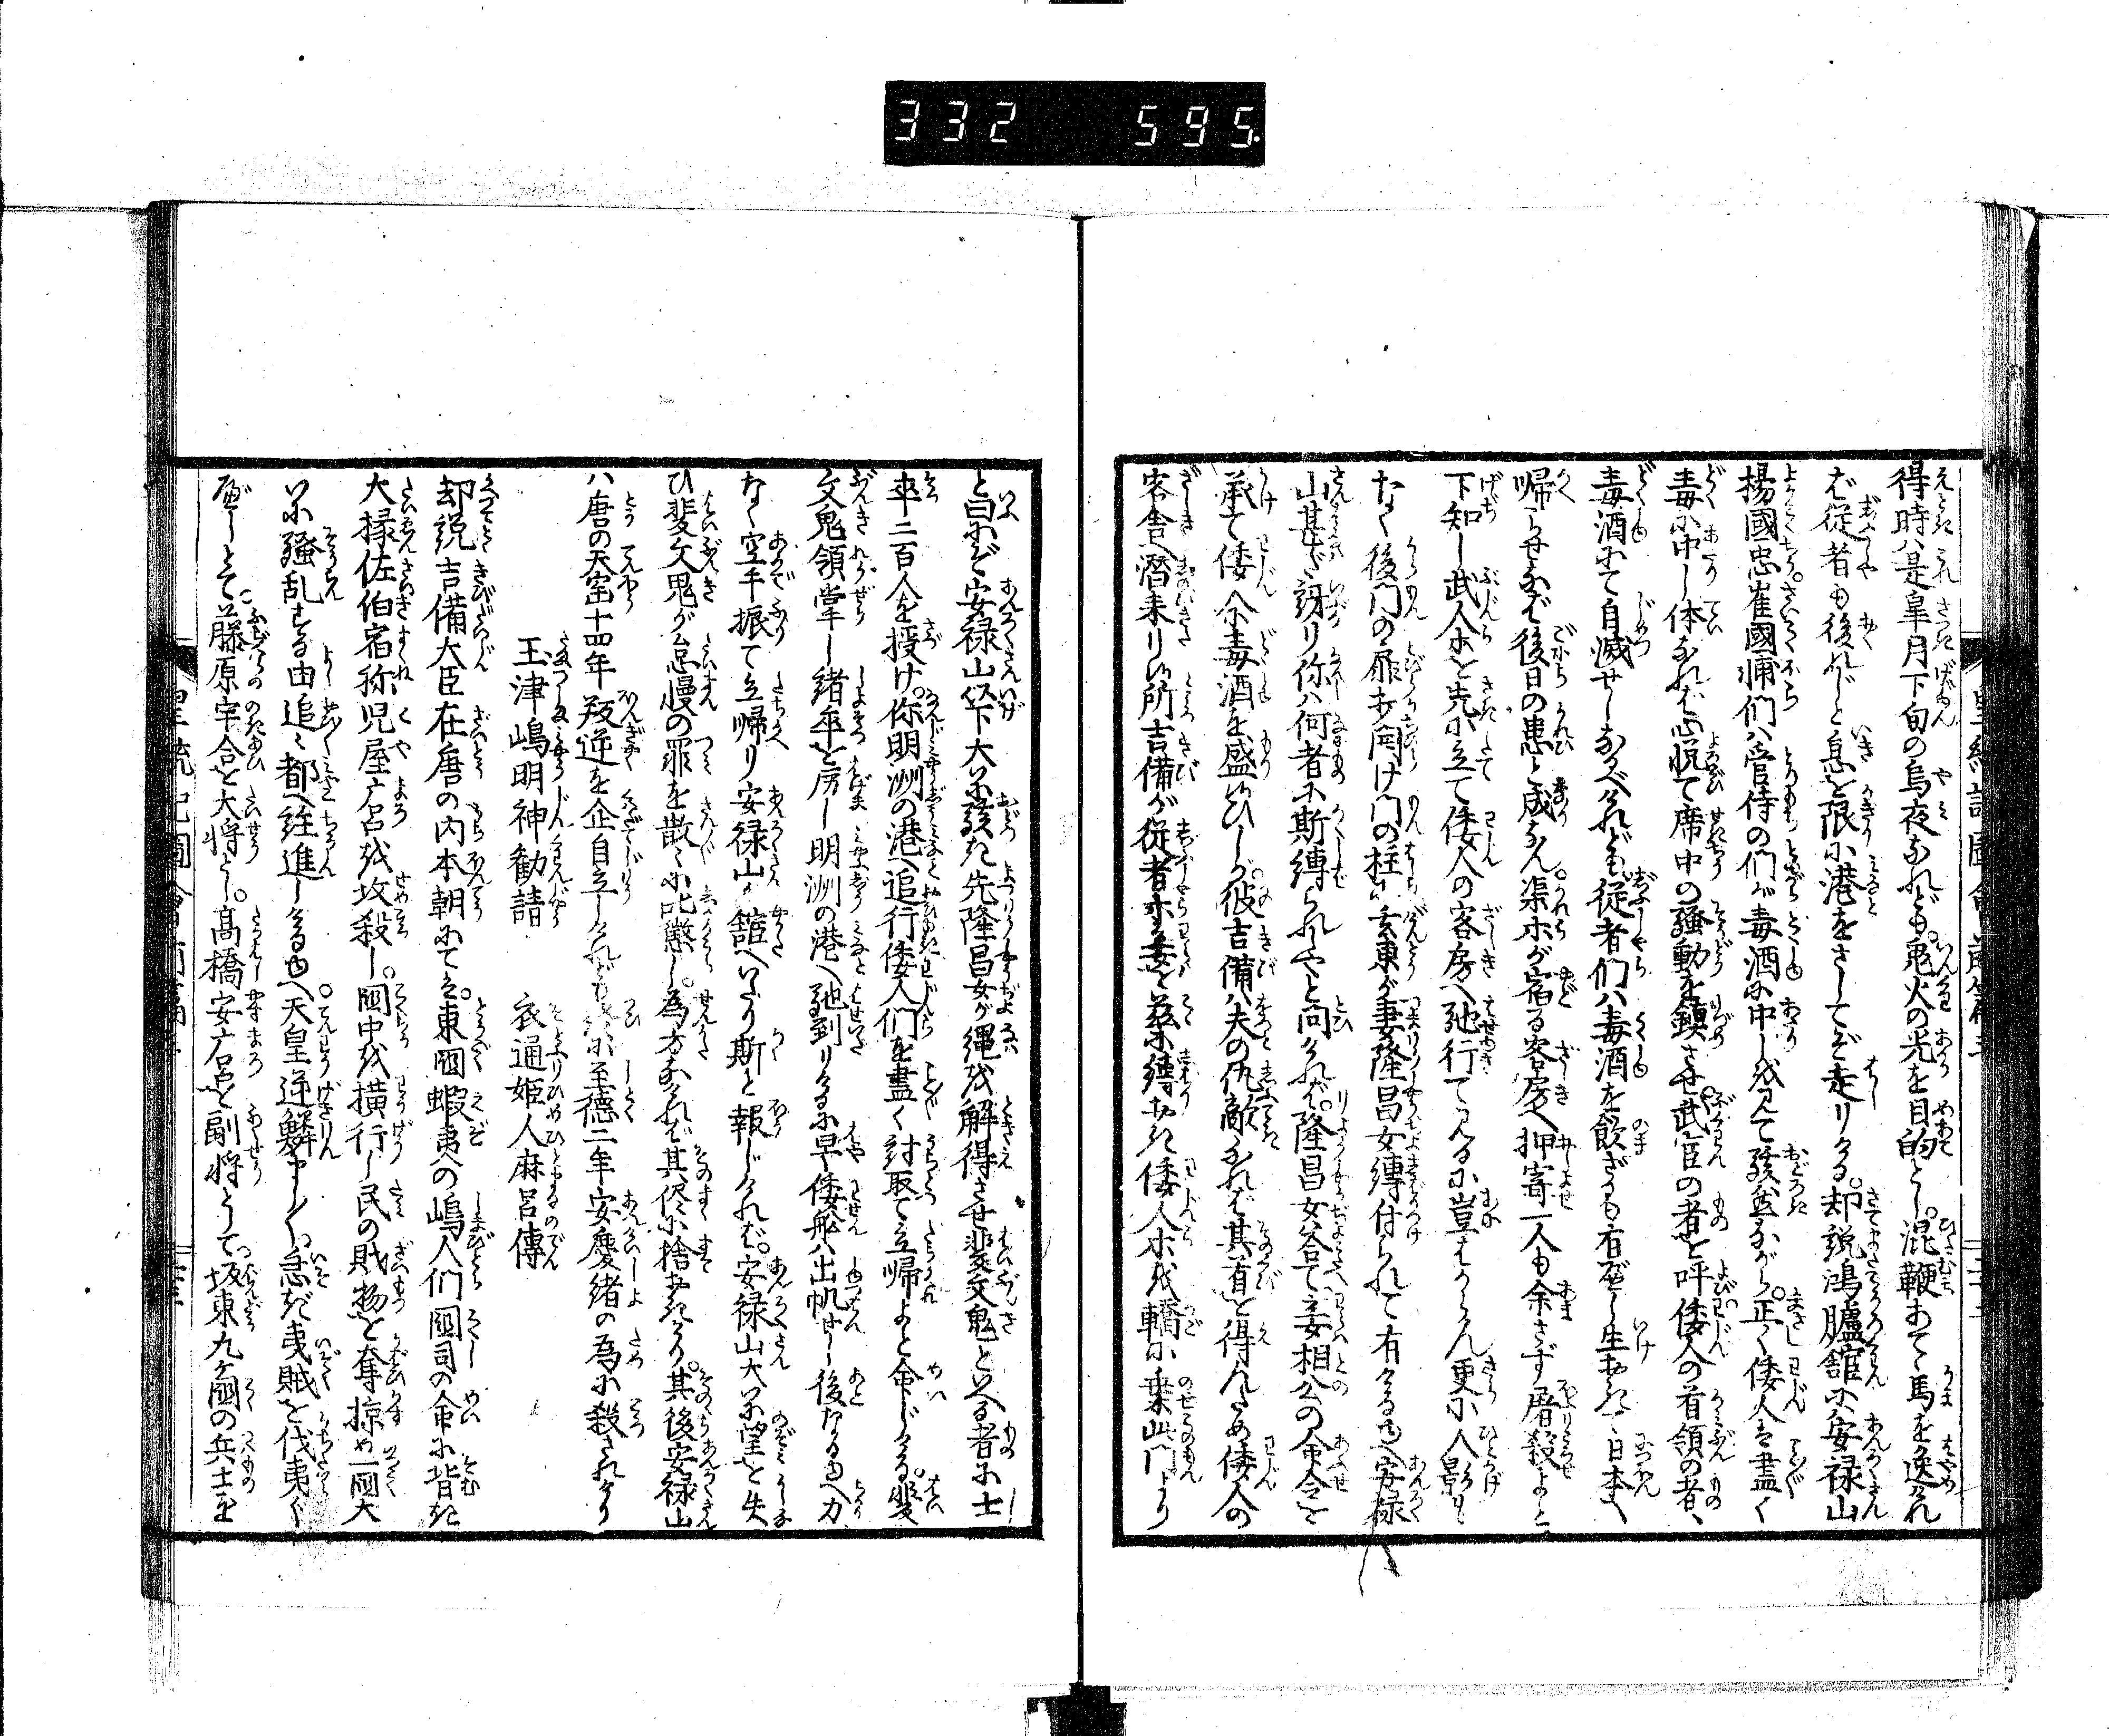 332 595
得時ハ是皐月下旬の烏夜なれども鬼火の光を目的とし。混鞭あて馬を逸れ
ば従者も後れじと息を限に港をさしてぞ走りける。却説鴻臚館に安禄山
揚國忠崔國輔们ハ管待の们が毒酒に中しを見て駭然ながら。正く倭人は盡く
毒に中し体なれバ心悦て席中の騒動を鎮させ。武官の者を呼倭人の首領の者、
毒酒にて自滅せしなるべけれども従者們ハ毒酒を飲ざるも有べし生おきて日本へ
帰らせなバ後日の患と成なん渠ホが宿る客房へ押寄一人も余さず屠殺よと
下知し武人ホを先に立て倭人の客房へ馳行て見るに豈はからん更に人影も
なく後門の扉を開け門の柱に玄東が妻隆昌女縛付られて有ける故安禄
山甚だ訝り你ハ何者に斯縛られしやと問けれバ。隆昌女答て妾相公の命令を
承て倭人に毒酒を盛いひしが。彼吉備ハ夫の仇敵なれバ其首を得んため倭人の
客舎へ潜来りし所吉備が従者ホ妾を茲に縛おき倭人ホを轎に乗此門より
と白にぞ安禄山以下大に駭き先隆昌女が縄を解得させ斐文鬼といへる者に士
卒二百人を授け。你明洲の港へ追行倭人們を盡く討取て立帰よと命じける。斐
文鬼領掌し緒卒を房し明洲の港へ馳到りけるに早倭舩ハ出帆せし後なる故力
なく空手振て立帰り安禄山が舘へいたり斯と報じけれバ。安禄山大に望を失
ひ斐文鬼が怠慢の罪を散々に叱懲し。為方なけれバ其侭に捨おきける。其後安禄山
ハ唐の天宝十四年叛逆を企自立しけれども終に至徳二年安慶緒の為に殺されけり
玉津嶋明神勧請　衣通姫人麻呂傳
却説吉備大臣在唐の内本朝にてハ。東國蝦夷の嶋人们國司の命に背き
大掾佐伯宿祢児屋广呂を攻殺し。國中を横行し民の財物を奪掠め一國大
いに騒乱する由追々都へ註進しける由へ天皇逆鱗ましく。急ぎ夷賊を伐夷ぐ
べしとて藤原宇合を大将とし。髙橋安广呂を副将として坂東九ヶ國の兵士を